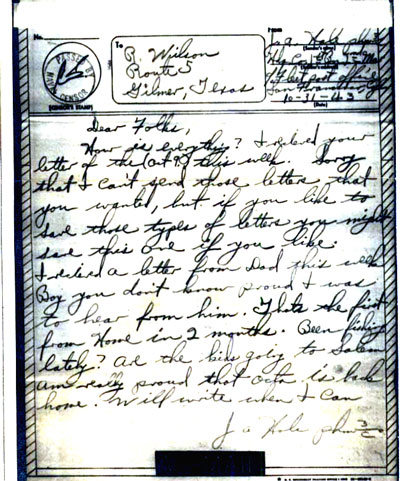 No.
To
From
R. Wilson
Route 5
Gilmer, Texas
PASSED BY
NAVAL CENSOR
(CENSOR'S STAMP)
Fleet post office
San Francisco
10-31-43
(Date)
Dear Folks,
How is everything? I recieved your
letter of the (Oct 9) this week. Sorry
that I can't send those letters that
you wanted, but if you like to
save those types of letters you might
save this one if you like.
I recieved a letter from Dad this week
Boy you don't know proud I was
to hear from him. Thats the first
from Home in 2 months. Been fishing
lately? are the kids going to Salem
am really proud that is back
home. Will write when I can
J a Hale phm 3/c